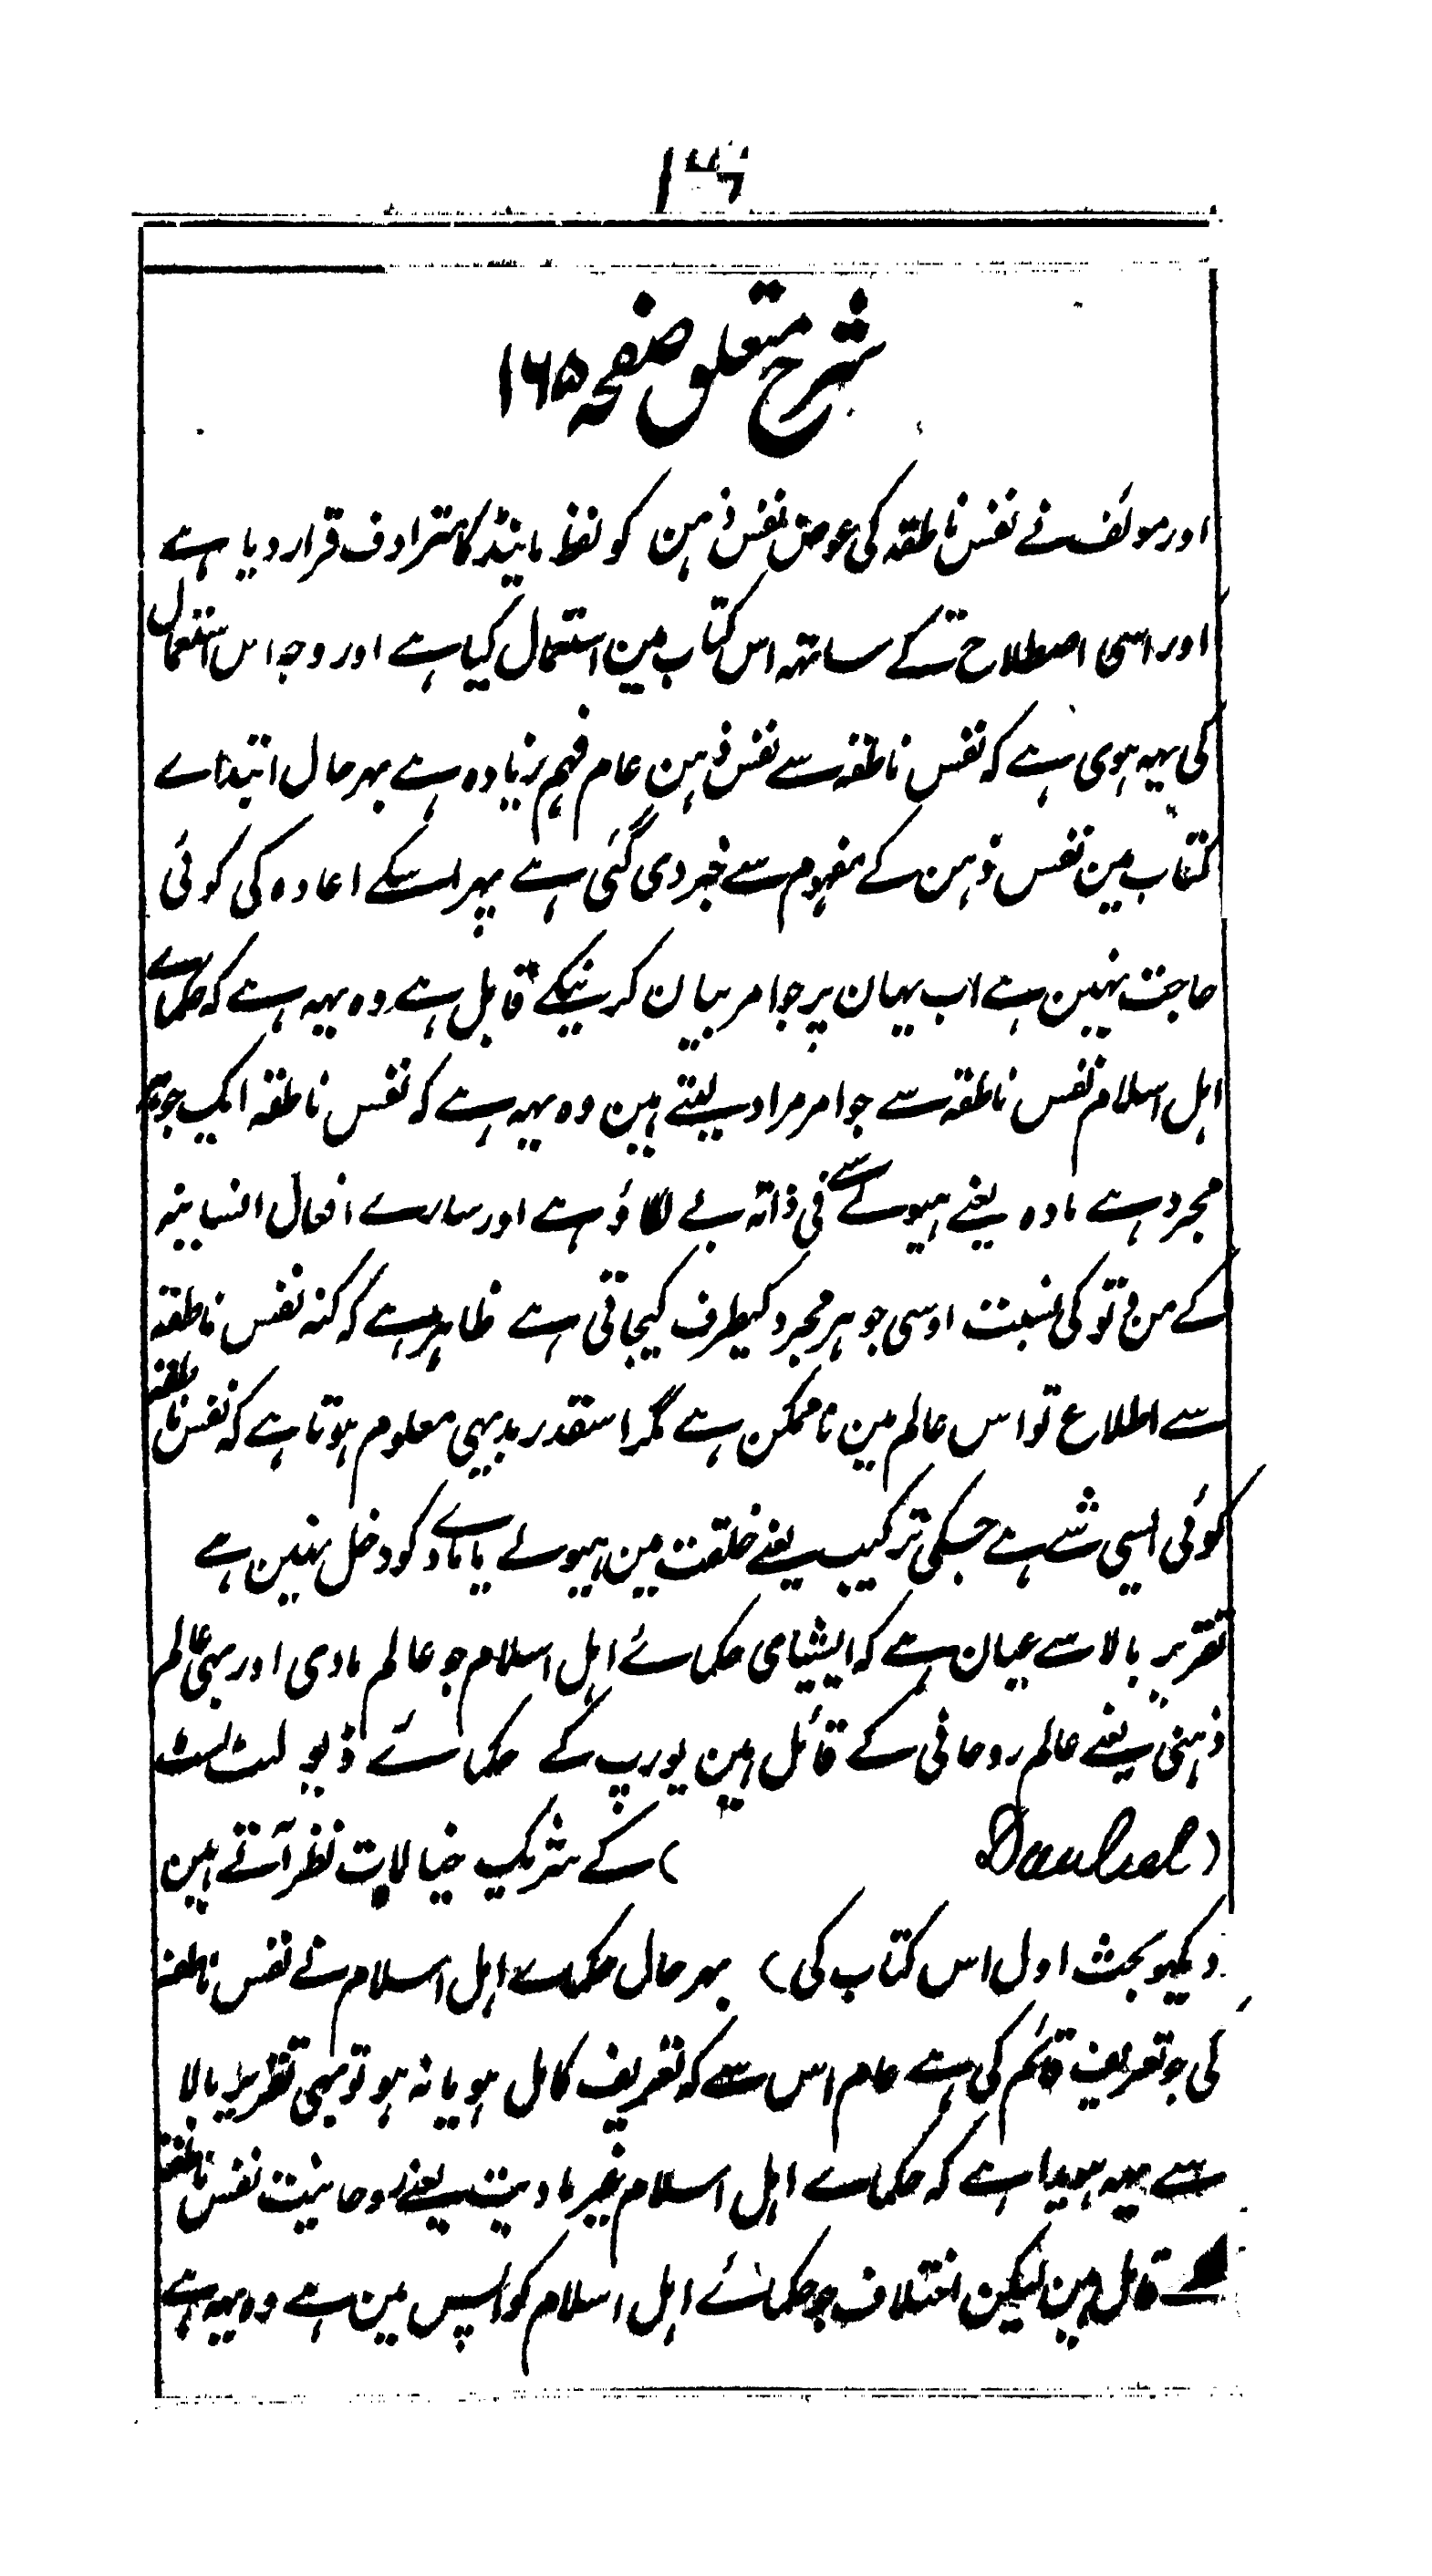 شرح متعلق صفحہ ۱۶۵
اور مولف نے نفس ناطقہ کی عوض نفس ذہن کو لفظ مائینڈ کا مترادف قرار دیا ہے
اور اسی اصطلاح کے ساتھہ اس کتاب مین استعمال کیا ہے اور وجہ اس استعمال
کی یہہ ہوی ہے کہ نفس ناطقہ سے نفس ذہن عام فہم زیادہ ہے بہر حال ابتداے
کتاب مین نفس ذہن کے مفہوم سے خبر دی گئی ہے پہر اسکے اعادہ کی کوئی
حاجت نہین ہے اب یہان پر جو امر بیان کرنیکے قابل ہے وہ یہہ ہے کہ حکماے
اہل اسلام نفس ناطقہ سے جو امر مراد لیتے ہین وہ یہہ ہے کہ نفس ناطقہ ایک جوہر
مجرد ہے مادہ یعنے ہیولے سے فی ذاتہ بے لگاؤ ہے اور سارے افعال انسانیہ
کے من و تو کی نسبت اوسی جوہر مجرد کیطرف کیجاتی ہے ظاہر ہے کہ کنہ نفس ناطقہ
سے اطلاع تو اس عالم مین ناممکن ہے مگر اسقدر بدیہی معلوم ہوتا ہے کہ نفس ناطقہ
کوئی ایسی شے ہے جسکی ترکیب یعنے خلقت مین ہیولے یا مادے کو دخل نہین ہے
تقریر بالا سے عیان ہے کہ ایشیای حکمائے اہل اسلام جو عالم مادی اور بہی عالم
ذہنی یعنے عالم روحانی کے قائل ہین یورپ کے حکمائے ڈیولسٹ
( ) کے شریک خیالات نظر آتے ہین
دیکھو بحث اول اس کتاب کی) بہر حال حکماے اہل اسلام نے نفس ناطقہ
کی جو تعریف قائم کی ہے عام اس سے کہ تعریف کامل ہو یا نہ ہو تو بہی تقریر بالا
سے یہہ ہویدا ہے کہ حکماے اہل اسلام غیر مادیت یعنے روحانیت نفس ناطقہ
کے قائل ہین لیکن اختلاف جو حکمائے اہل اسلام کو آپس مین ہے وہ یہہ ہے